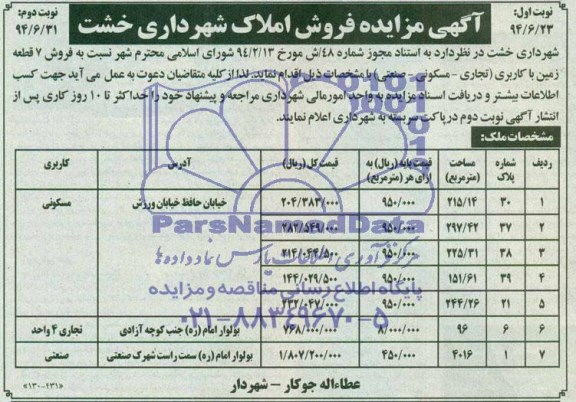 نوبت اول:
۹۴/۶/۲۳
آگهی مزایده فروش املاک شهرداری خشت
نوبت دوم:
۹۴/۶/۳۱
شهرداری خشت در نظردارد به استناد مجوز شماره ۴۸/ش مورخ ۹۴/۲/۱۳ شورای اسلامی محترم شهر نسبت به فروش ۷ قطعه
زمین با کاربری (تجاری - مسکونی - صنعتی) با مشخصات ذیل اقدام نماید. لذا از کلیه متقاضیان دعوت به عمل می آید جهت کسب
اطلاعات بیشتر و دریافت اسناد مزایده به واحد امورمالی شهرداری مراجعه و پیشنهاد خود را حداکثر تا ۱۰ روز کاری پس از
انتشار آگهی نوبت دوم در پاکت سربسته به شهرداری اعلام نمایند.
مشخصات ملک:
ردیف شماره پلاک مساحت (مترمربع) قیمت پایه (ریال) به ازای هر (مترمربع) قیمت کل (ریال) آدرس کاربری
۱ ۳۰ ۲۱۵/۱۴ ۹۵۰/۰۰۰ ۲۰۴/۳۸۳/۰۰۰ خیابان حافظ خیابان ورزش مسکونی
۲ ۳۷ ۲۹۷/۴۲ ۹۵۰/۰۰۰ ۲۸۲/۵۴۹/۰۰۰
۳ ۳۸ ۲۲۵/۳۱ ۹۵۰/۰۰۰ ۲۱۴/۰۴۴/۵۰۰
۴ ۳۹ ۱۵۱/۶۱ ۹۵۰/۰۰۰ ۱۴۴/۰۲۹/۵۰۰
۵ ۲۱ ۲۴۴/۲۶ ۹۵۰/۰۰۰ ۲۳۲/۰۴۷/۰۰۰
۶ ۶ ۹۶ ۸/۰۰۰/۰۰۰ ۷۶۸/۰۰۰/۰۰۰ بولوار امام (ره) جنب کوچه آزادی تجاری ۴ واحد
۷ ۱ ۴۰۱۶ ۴۵۰/۰۰۰ ۱/۸۰۷/۲۰۰/۰۰۰ بولوار امام (ره) سمت راست شهرک صنعتی صنعتی
ParsNamadData
مرکز فرآوری اطلاعات پارس نماد داده ها
پایگاه اطلاع رسانی مناقصه و مزایده
۰۲۱-۸۸۳۴۹۶۷۰-۵
عطاءاله جوکار - شهردار
«۱۳۰-۲۳۱»